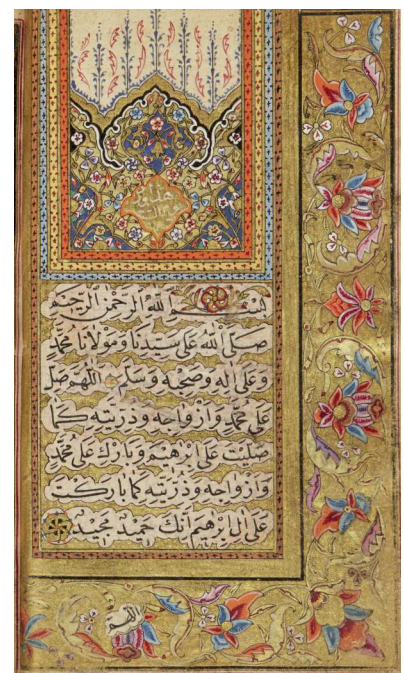 بسم الله الرحمن الرحيم
صلى الله على سيدنا ومولانا محمد
وعلى اله وصحبه وسلم اللهم صل
على محمد وازواجه وذريته كما
صليت على ابرهيم وبارك على محمد
وازواجه وذريته كما باركت
على ال ابرهيم انك حميد مجيد
اللهم